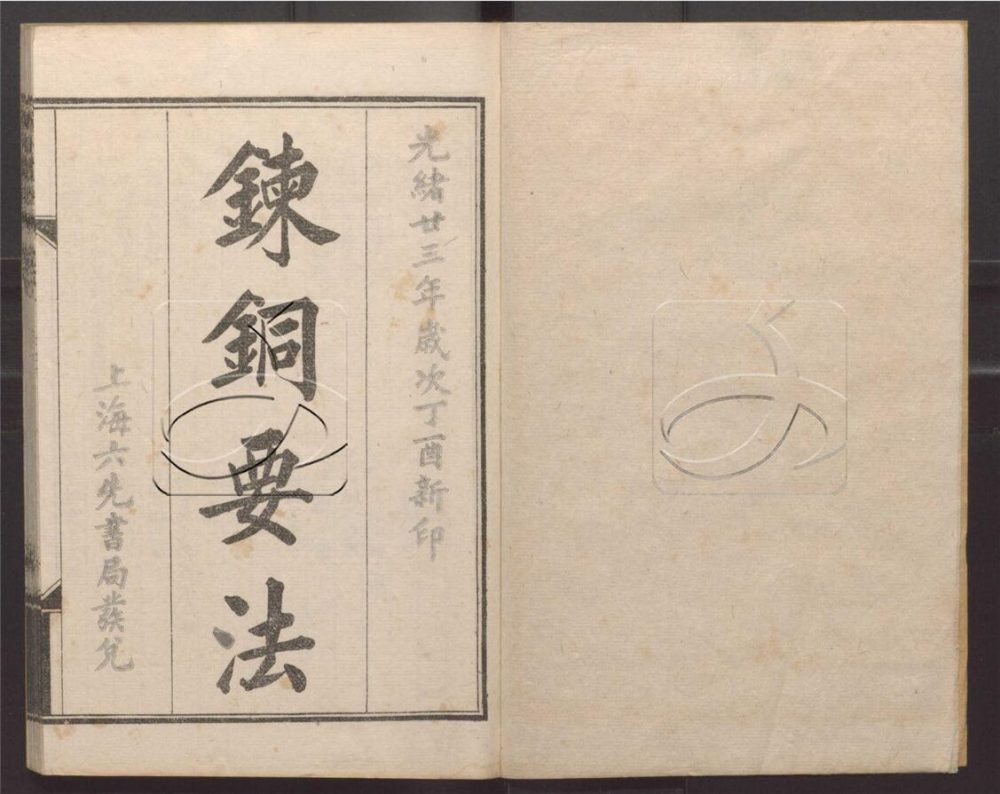 光緒廿三年歲次丁酉新印
鍊銅要法
上海六先書局發兌